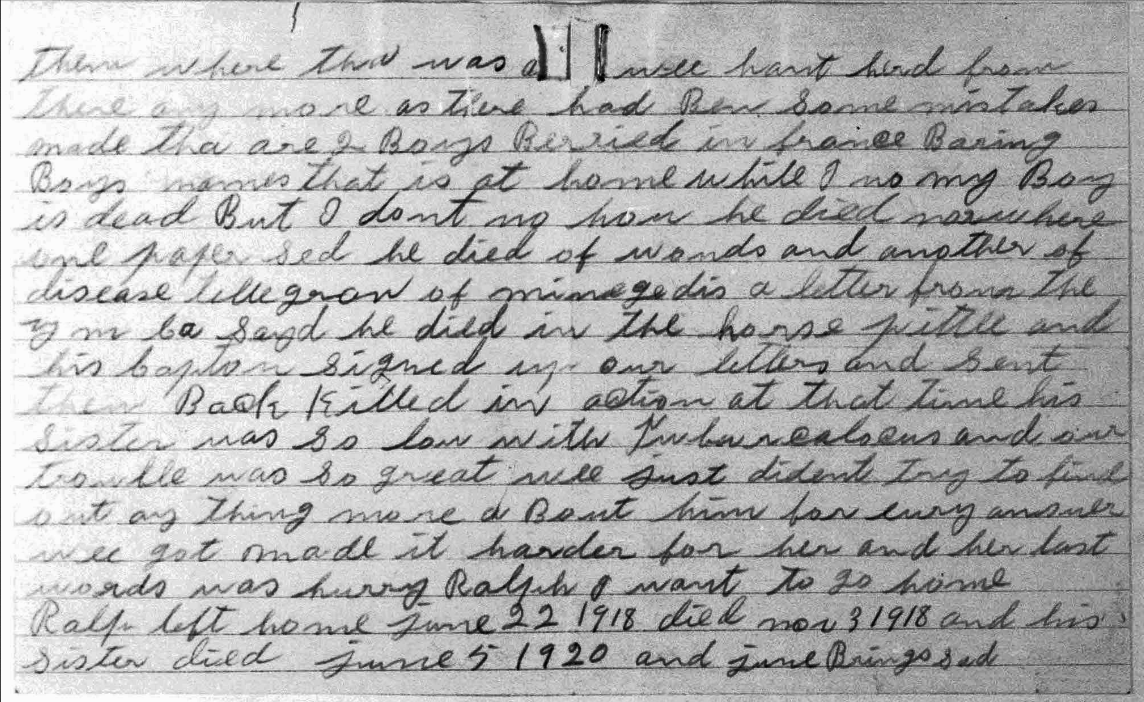 them where tha was a wee hant herd from
there any more as there had Ben some mistakes
made tha are 2 Boys Berried in france Baring
Boys names that is at home while I no my Boy
is dead But I dont no how he died nor where
one paper sed he died of wonds and another of
disease tellegram of a letter from the
y m ca sayd he died in the horse pittle and
his Capton signed up our letters and sent
them Back Killed in action at that time his
sister was so low with and our
trouble was so great wee just dident try to find
out any thing more a Bout him for eury answer
wee got made it harder for her and her last
words was hurry Ralph I want to go home
Ralp left home june 22 1918 died nov 3 1918 and his
sister died june 5 1920 and june Brings sad